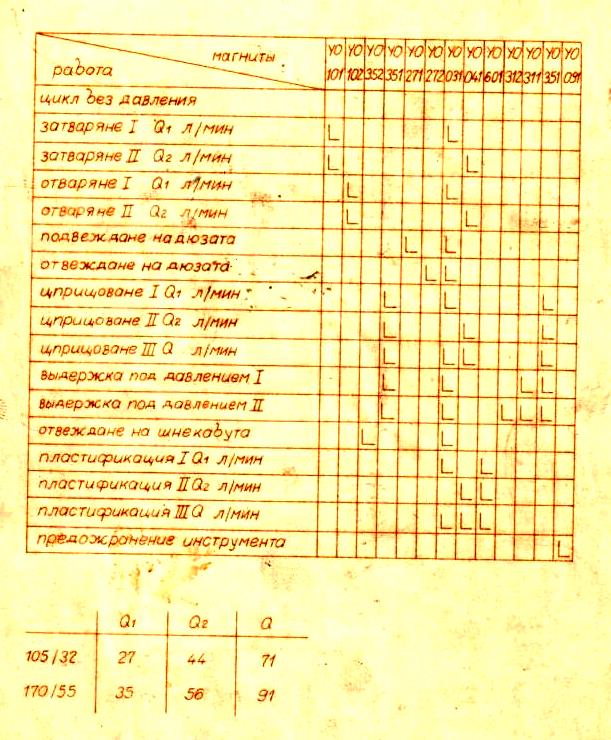 магниты
работа
УО УО УО УО УО УО УО УО УО УО УО УО УО
101 102 352 351 271 272 031 041 601 312 311 351 091
цикл без давления
затваряне I Q1 л/мин L L
затваряне II Q2 л/мин L L
отваряне I Q1 л/мин L L
отваряне II Q2 л/мин L L
подвеждане на дюзата L L
отвеждане на дюзата L L
щприцоване I Q1 л/мин L L L
щприцоване II Q2 л/мин L L L
щприцоване III Q л/мин L L L L
выдержка под давлением I L L L L
выдержка под давлением II L L L L L
отвеждане на шнека бута L L
пластификация I Q1 л/мин L L
пластификация II Q2 л/мин L L
пластификация III Q л/мин L L L
предожранение инструмента L
Q1 Q2 Q
105/32 27 44 71
170/55 35 56 91